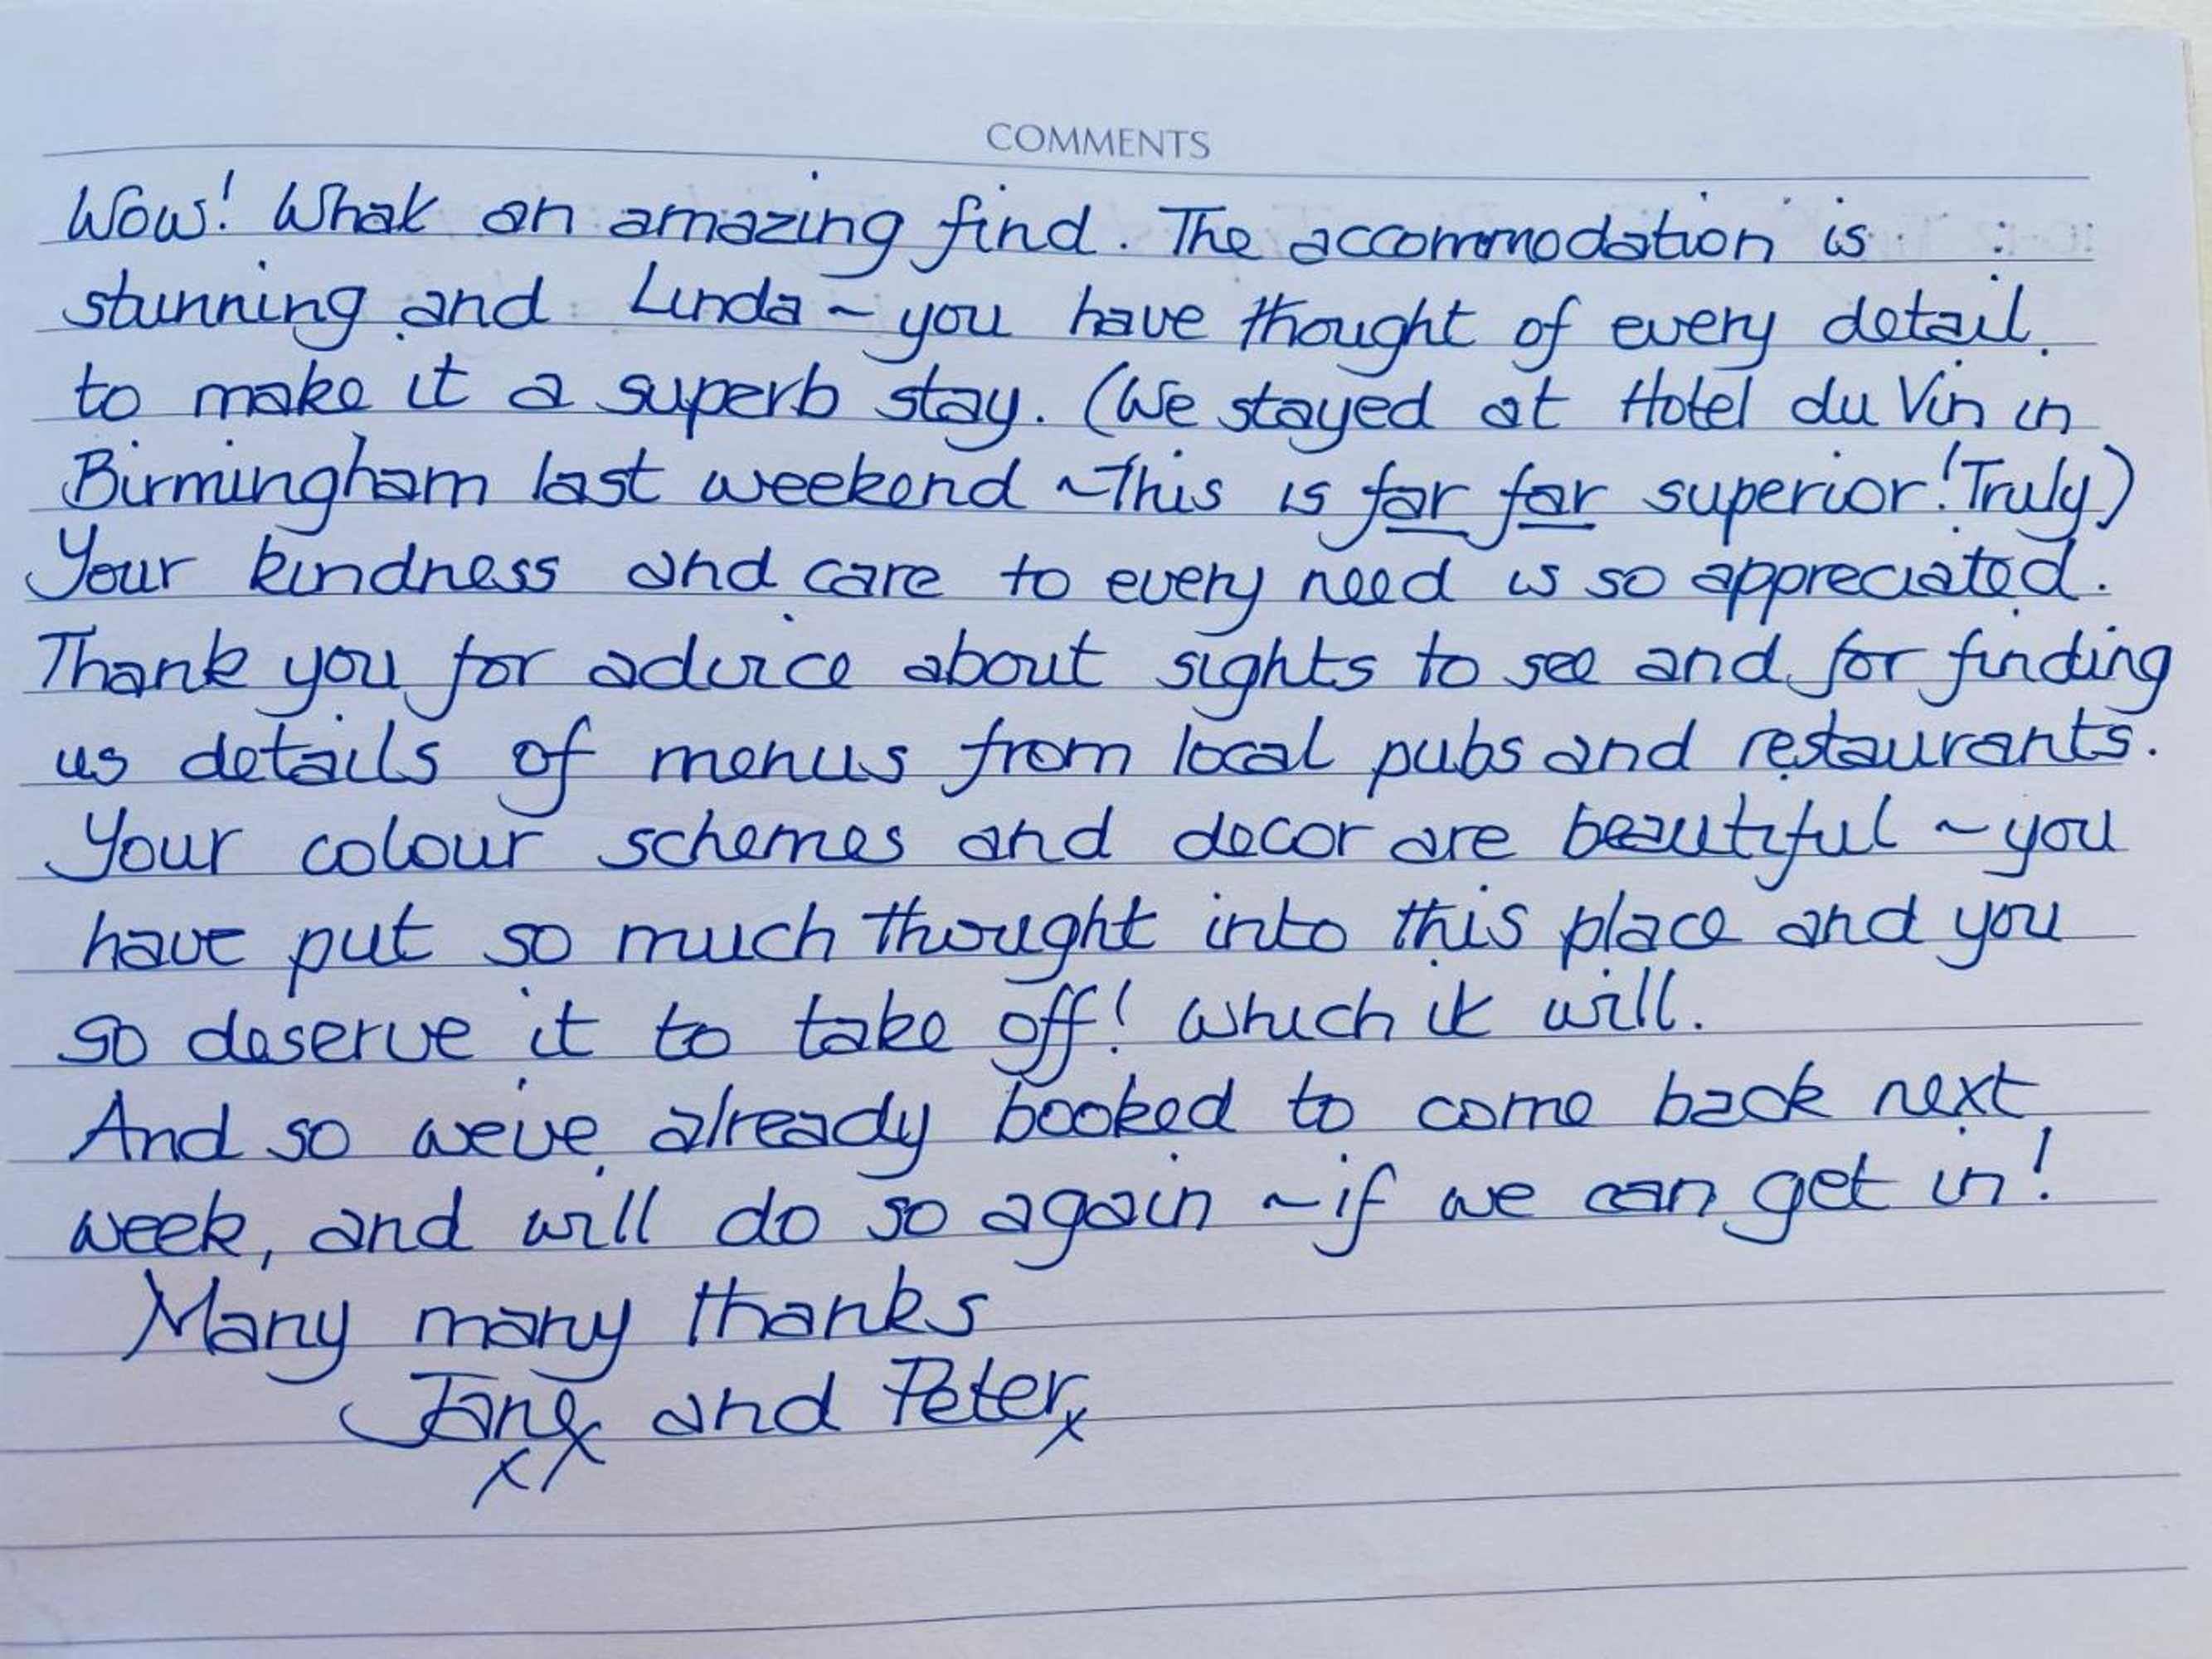 COMMENTS
Wow! What an amazing find. The accommodation is
stunning and Linda ~ you have thought of every detail
to make it a superb stay. (We stayed at Hotel du Vin in
Birmingham last weekend ~ This is far far superior! Truly)
Your kindness and care to every need is so appreciated.
Thank you for advice about sights to see and for finding
us details of menus from local pubs and restaurants.
Your colour schemes and decor are beautiful ~ you
have put so much thought into this place and you
so deserve it to take off! Which it will.
And so weve already booked to come back next
week, and will do so again ~ if we can get in!
Many many thanks
Jane x and Peter x
xx